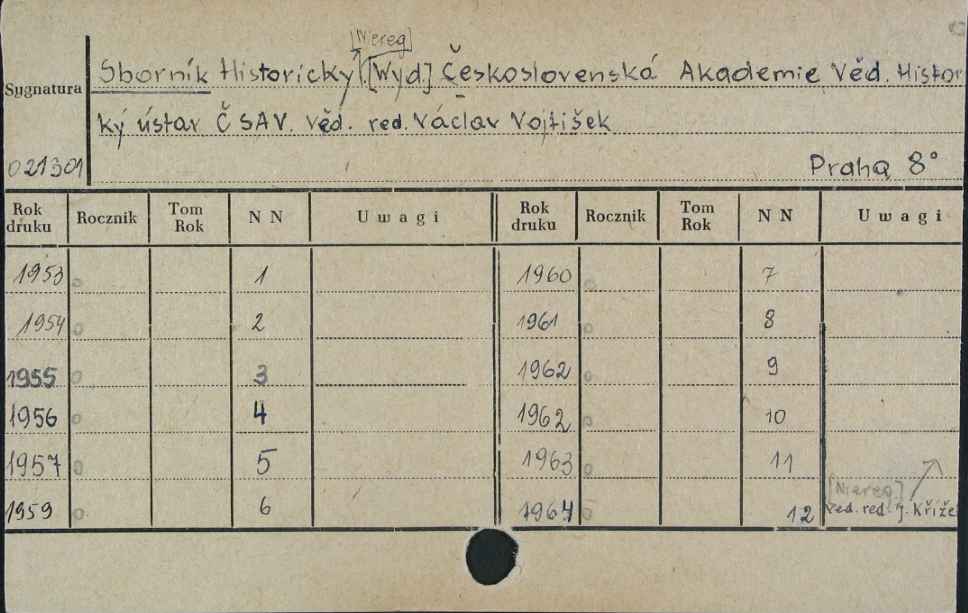 [Niereg]
Sborník Historický [Wyd.] Československá Akademie Věd. Histor
Sygnatura
ký ústav ČSAV. Věd. red. Václav Vojtíšek
021301
Praha 8°
Rok druku Rocznik Tom Rok NN Uwagi Rok druku Rocznik Tom Rok NN Uwagi
1953 1 1960 7
1954 2 1961 8
1955 3 1962 9
1956 4 1962 10
1957 5 1963 11
[Niereg]
1959 6 1964 12 Věd. red. J. Kříže